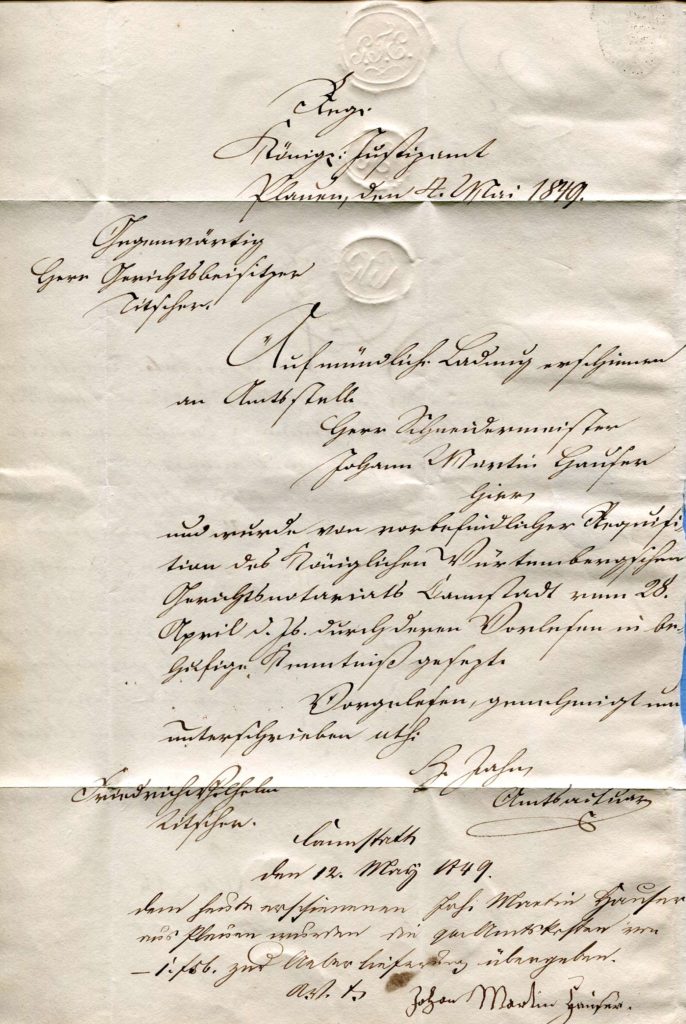 Reg.
Königl: Justizamt
Plauen, den 4. Mai 1849.
Gegenwärtig
Herr Gerichtsbeisitzer
Titscher.
Auf mündliche Ladung erschienen
an Amtsstelle
Herr Schneidermeister
Johann Martin Hauser
hier,
und wurde von vorbefindlicher Requisi-
tion des Königlichen Würtembergschen
Gerichtsnotariats Cannstadt vom 28.
April d. Js. durch deren Vorlesen in be-
hufige Kenntniß gesetzt.
Vorgelesen, genehmigt und
unterschrieben
Jahn,
Friedrich Wilhelm
Amtsactuar
Titscher.
Cannstatt
den 12. May 1849.
dem heute erschienenen Joh. Martin Hauser
aus Plauen wurden die Amtskosten von
zur Ueberlieferung übergeben.
Johan Martin Hauser.